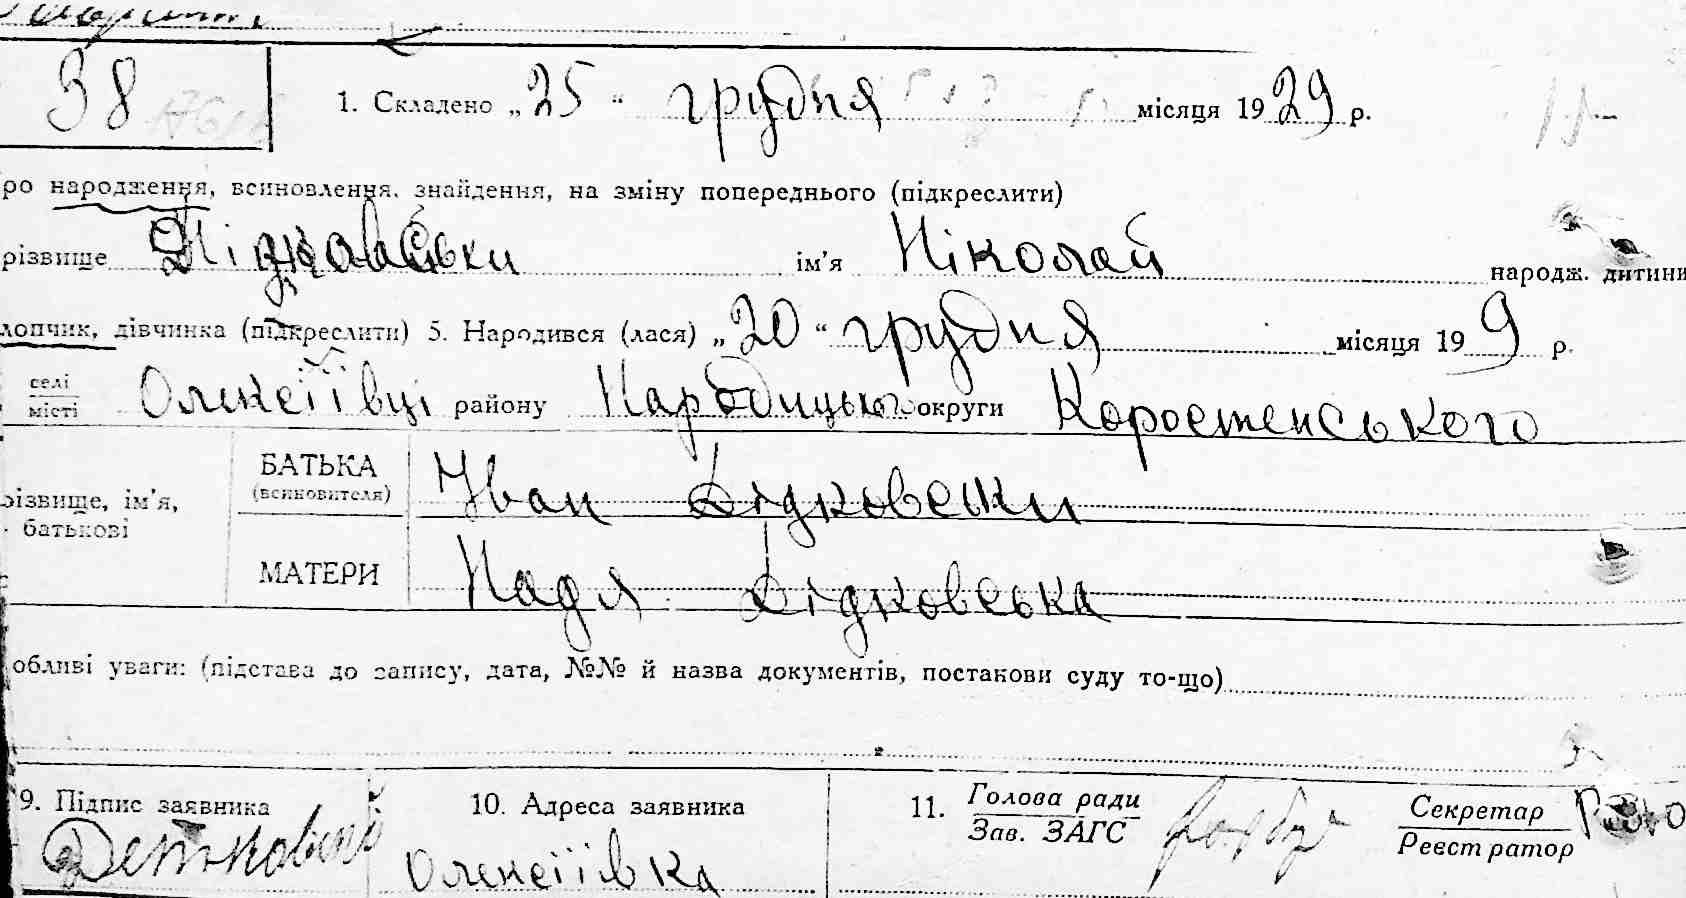 38
1. Складено „25“ грудня місяця 1929 р.
ро народження, всиновлення, знайдення, на зміну попереднього (підкреслити)
різвище Дідковськи ім'я Ніколай народж. дитини
лопчик, дівчинка (підкреслити) 5. Народився (лася) „20“ грудня місяця 19 9 р.
селі
місті Олексіївці району Народицького округи Коростенського
різвище, ім'я, батькові
БАТЬКА (всиновителя) Іван Дідковськи
МАТЕРИ Надя Дідковська
обливі уваги: (підстава до запису, дата, №№ й назва документів, постакови суду то-що)
9. Підпис заявника
10. Адреса заявника
Олексіївка
11. Голова ради
Зав. ЗАГС
Секретар
Реєстратор